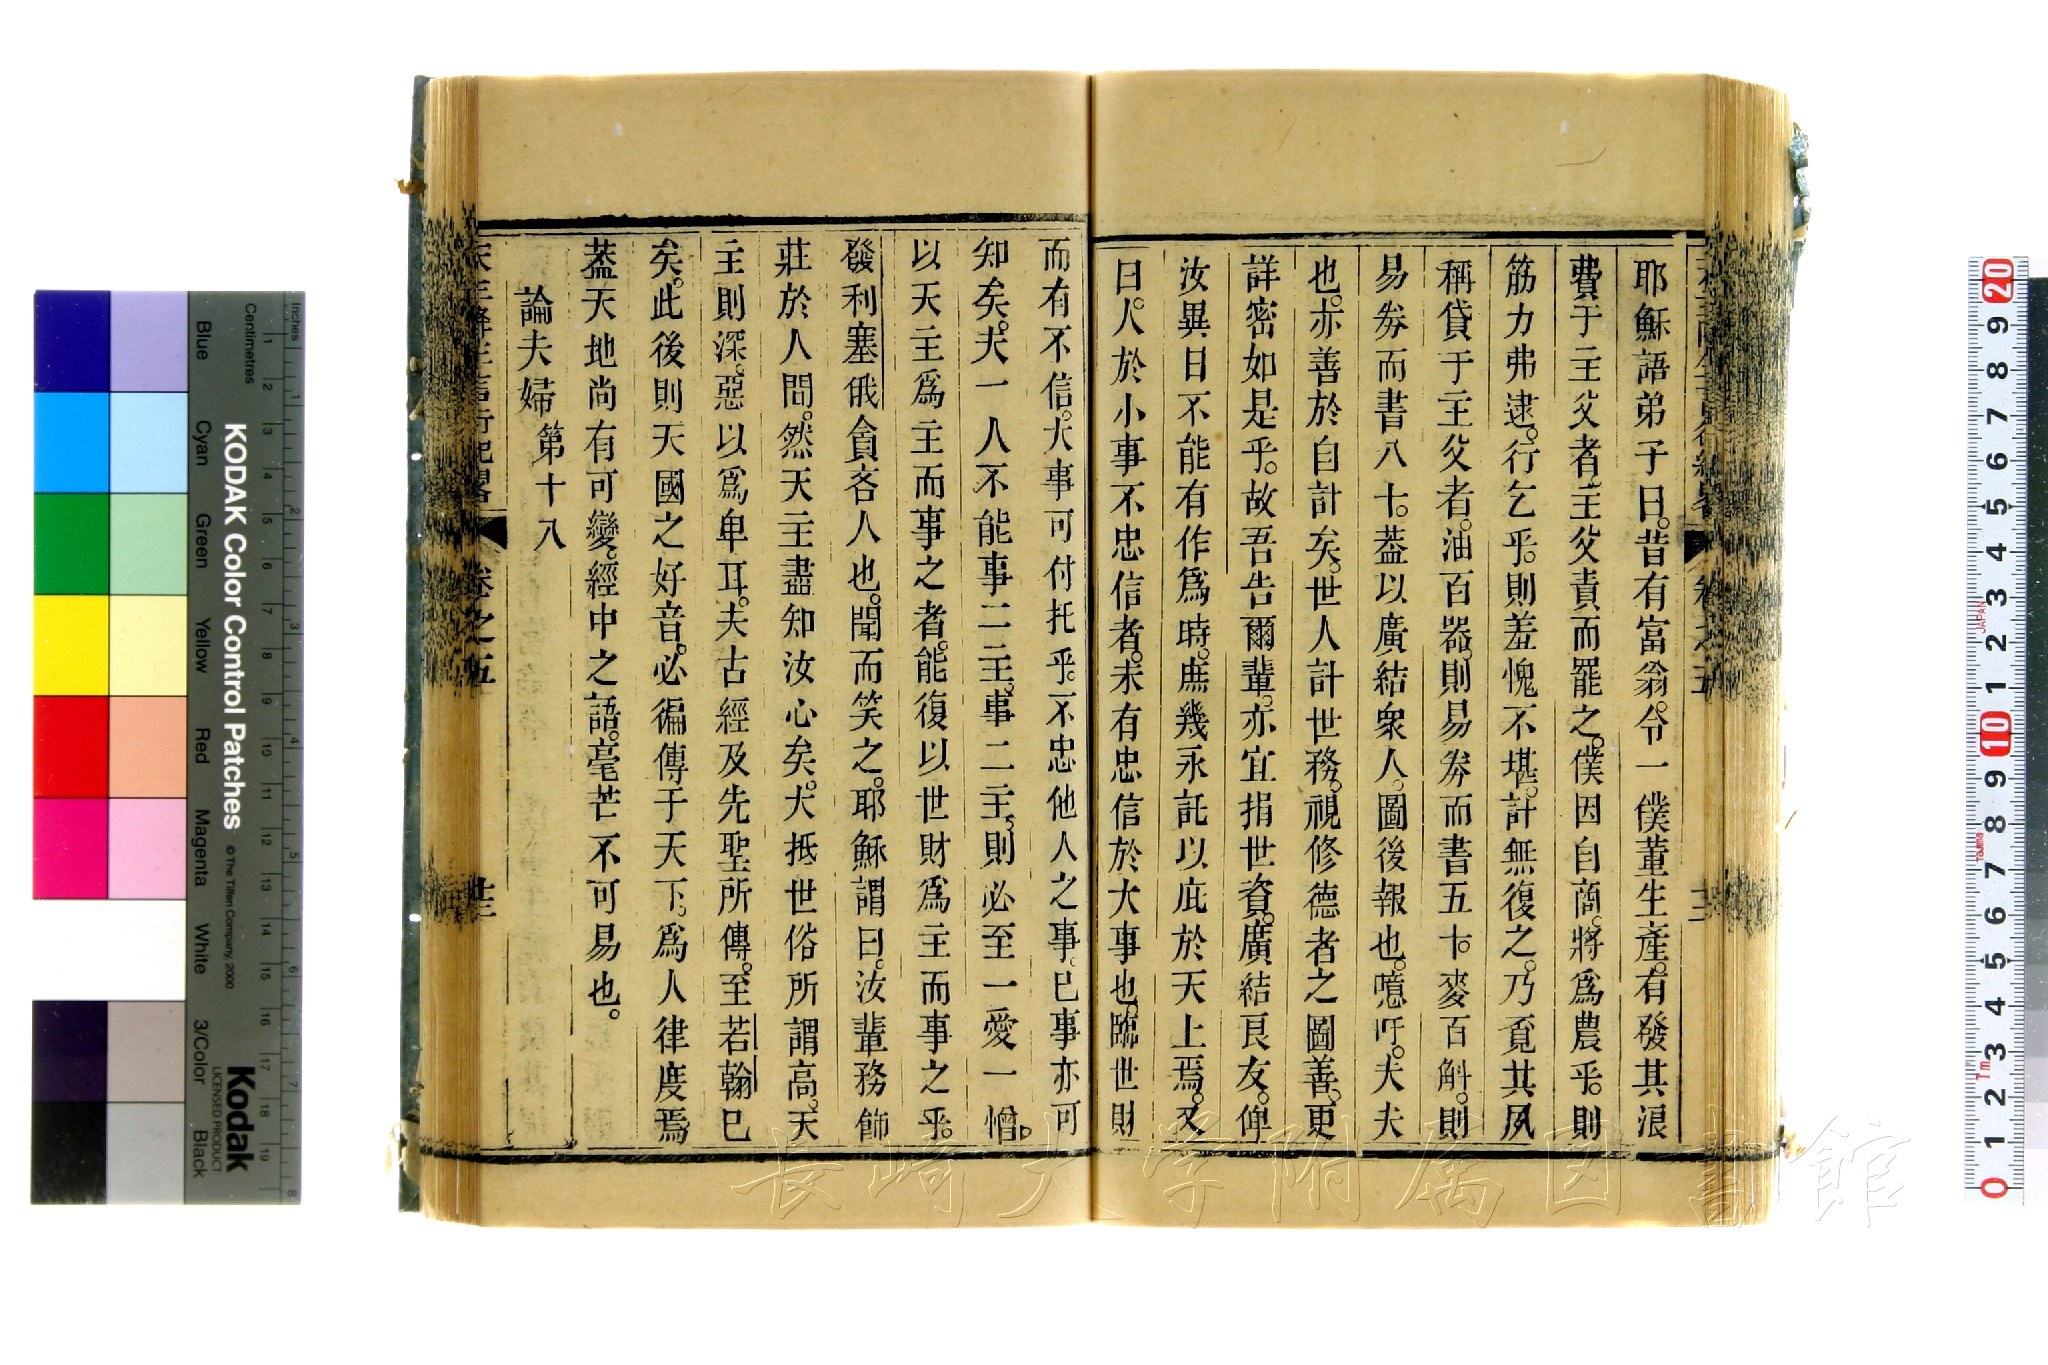 耶穌語弟子曰。昔有富翁。令一僕董生產。有發其浪
費于主父者。主父責而罷之。僕因自商。將爲農乎。則
筋力弗逮。行乞乎。則羞愧不堪。計無復之。乃覓其夙
稱貸于主父者。油百器。則易劵而書五十。麥百斛。則
易劵而書八十。葢以廣結衆人。圖後報也。噫吁。夫夫
也。亦善於自計矣。世人計世務。視修德者之圖善。更
詳密如是乎。故吾告爾輩。亦宜捐世資。廣結良友。俾
汝異日不能有作爲時。庶幾永託以庇於天上焉。又
曰。人於小事不忠信者。未有忠信於大事也。臨世財
而有不信。大事可付托乎。不忠他人之事。已事亦可
知矣。夫一人不能事二主。事二主。則必至一愛一憎。
以天主爲主而事之者。能復以世財爲主而事之乎。
發利塞俄貪吝人也。聞而笑之。耶穌謂曰。汝輩務飾
莊於人間。然天主盡知汝心矣。大抵世俗所謂高。天
主則深惡以爲卑耳。夫古經及先聖所傳。至若翰已
矣。此後則天國之好音。必徧傳于天下。爲人律度焉。
葢天地尚有可變。經中之語。毫芒不可易也。
論夫婦第十八
天主降生言行紀畧
卷之五
廿三
KODAK Color Control Patches
© The Tiffen Company, 2000
Kodak
LICENSED PRODUCT
Inches
Centimetres
Blue
Cyan
Green
Yellow
Red
Magenta
White
3/Color
Black
長崎大学附属図書館
JAPAN